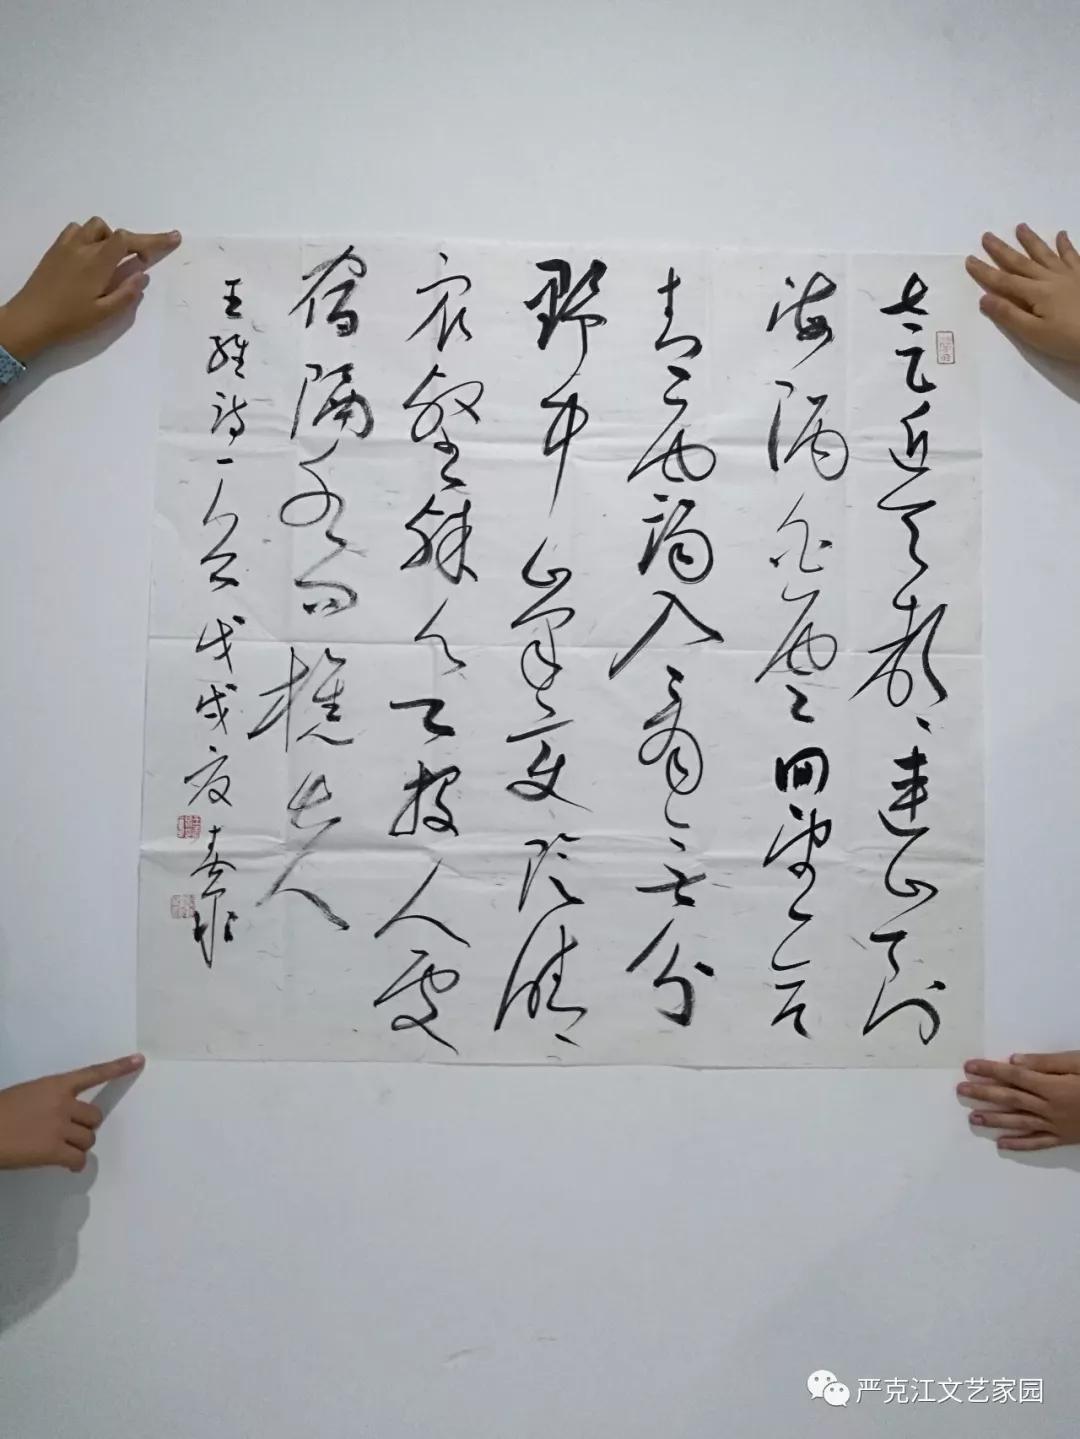 太乙近天都連山到
海隅白雲回望合
青靄入看無分
野中峰變陰晴
眾壑殊欲投人處
宿隔水問樵夫
王維詩一首戊戌夏
严克江文艺家园